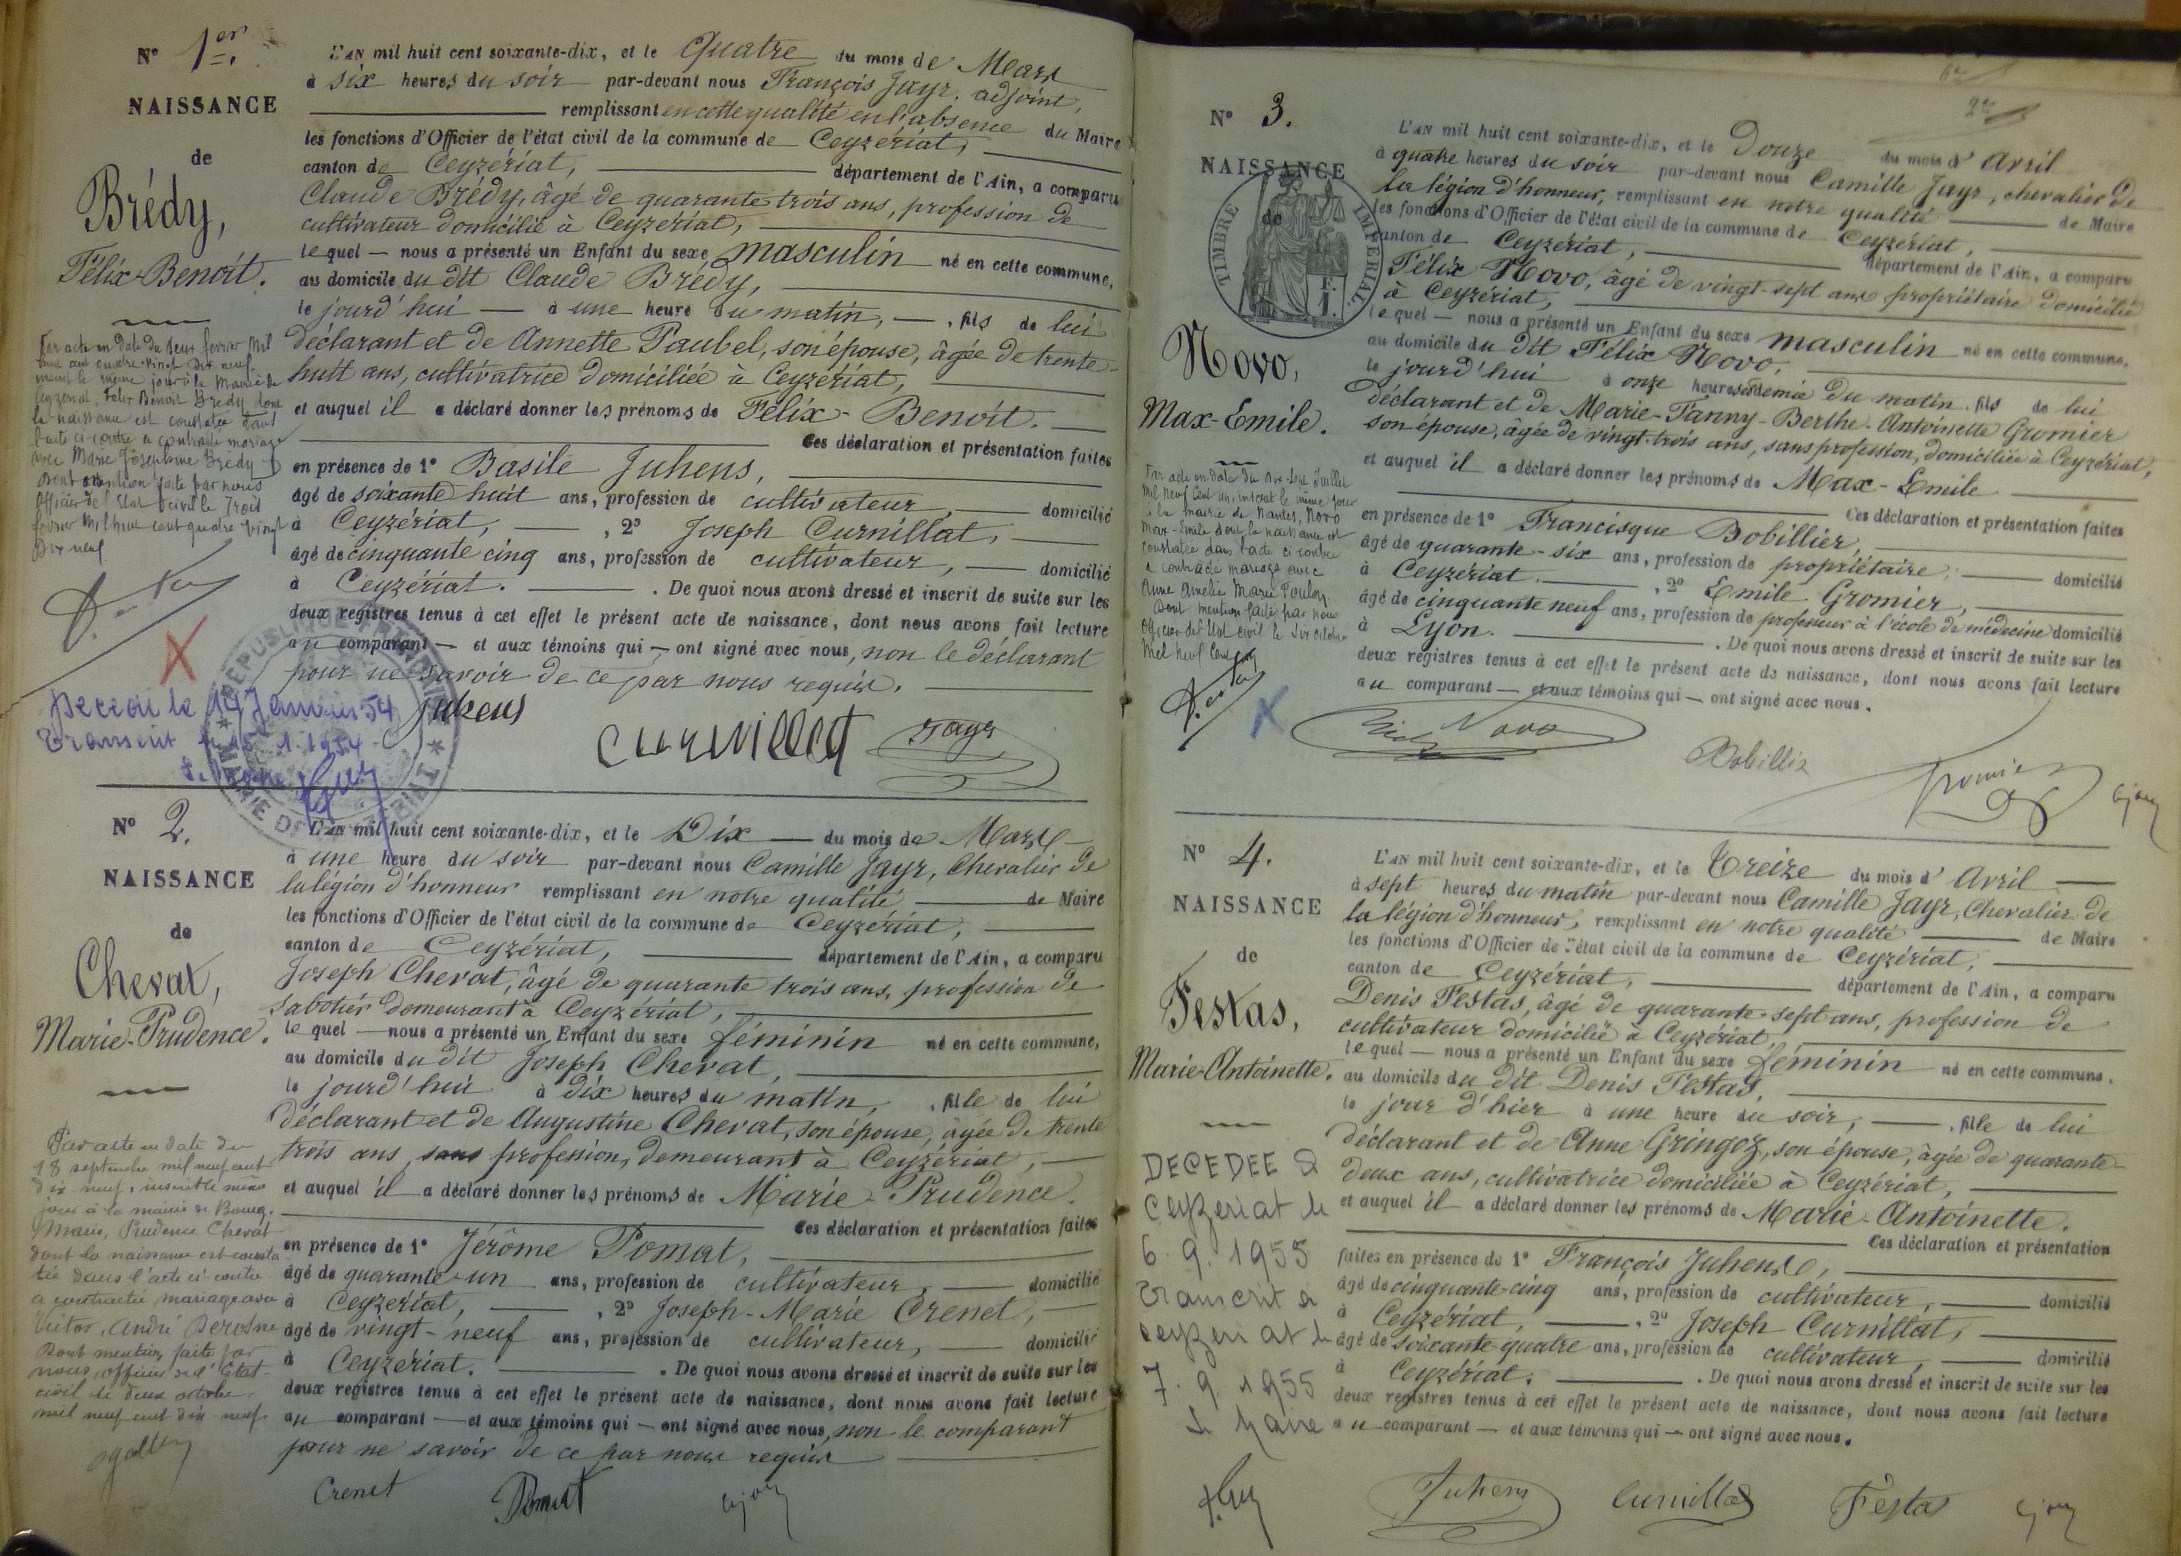 N° 1er.
NAISSANCE
de
Brédy,
Félix-Benoit.
L'AN mil huit cent soixante-dix, et le Quatre du mois de Mars
à six heures du soir par-devant nous François Jayr, adjoint,
remplissant en cette qualité en l'absence du Maire
les fonctions d'Officier de l'état civil de la commune de Ceyzériat,
canton de Ceyzériat, département de l'Ain, a comparu
Claude Brédy, âgé de quarante trois ans, profession de
cultivateur domicilié à Ceyzériat,
lequel — nous a présenté un Enfant du sexe masculin né en cette commune,
au domicile du dit Claude Brédy,
le jourd'hui — à une heure du matin, — , fils de lui
déclarant et de Annette Paubel, son épouse, âgée de trente-
huit ans, cultivatrice domiciliée à Ceyzériat,
et auquel il a déclaré donner les prénoms de Félix-Benoit.
Ces déclaration et présentation faites
en présence de 1° Basile Juhens,
âgé de soixante huit ans, profession de cultivateur, domicilié
à Ceyzériat, , 2° Joseph Curnillat,
âgé de cinquante cinq ans, profession de cultivateur, domicilié
à Ceyzériat. . De quoi nous avons dressé et inscrit de suite sur les
deux registres tenus à cet effet le présent acte de naissance, dont nous avons fait lecture
au comparant — et aux témoins qui — ont signé avec nous, non le déclarant
pour ne savoir de ce par nous requis.
Juhens
Curnillat
Jayr
Par acte en date du deux février mil
huit cent quatre-vingt dix neuf
le même jour à la Mairie de
Ceyzériat, Felix Benoit Brédy dont
la naissance est constatée dans
l'acte ci-contre a contracté mariage
avec Marie Joséphine Brédy
dont mention faite par nous
Officier de l'État civil le Trois
février mil huit cent quatre vingt
dix neuf
Décédé le 14 Janvier 54
Transcrit 1.1954
N° 2.
NAISSANCE
de
Chevat,
Marie-Prudence.
L'AN mil huit cent soixante-dix, et le Dix du mois de Mars
à une heure du soir par-devant nous Camille Jayr, Chevalier de
la légion d'honneur remplissant en notre qualité de Maire
les fonctions d'Officier de l'état civil de la commune de Ceyzériat,
canton de Ceyzériat, département de l'Ain, a comparu
Joseph Chevat, âgé de quarante trois ans, profession de
sabotier demeurant à Ceyzériat,
lequel — nous a présenté un Enfant du sexe féminin né en cette commune,
au domicile du dit Joseph Chevat,
le jourd'hui à dix heures du matin, , fille de lui
déclarant et de Augustine Chevat, son épouse, âgée de trente
trois ans, sans profession, demeurant à Ceyzériat,
et auquel il a déclaré donner les prénoms de Marie-Prudence.
Ces déclaration et présentation faites
en présence de 1° Jérôme Pomat,
âgé de quarante-un ans, profession de cultivateur, domicilié
à Ceyzériat, , 2° Joseph-Marie Crenet,
âgé de vingt-neuf ans, profession de cultivateur, domicilié
à Ceyzériat. . De quoi nous avons dressé et inscrit de suite sur les
deux registres tenus à cet effet le présent acte de naissance, dont nous avons fait lecture
au comparant — et aux témoins qui — ont signé avec nous, non le comparant
pour ne savoir de ce par nous requis
Crenet
Pomat
Par acte en date du
18 septembre mil neuf cent
dix-neuf, inscrit le même
jour à la mairie de Bourg,
Marie, Prudence Chevat
dont la naissance est consta-
tée dans l'acte ci contre
a contracté mariage avec
Victor, André Derosne
Dont mention faite par
nous, officier de l'État-
civil le deux octobre
mil neuf cent dix-neuf.
N° 3.
NAISSANCE
de
TIMBRE IMPÉRIAL
Novo,
Max-Emile.
L'AN mil huit cent soixante-dix, et le Douze du mois d'avril
à quatre heures du soir par-devant nous Camille Jayr, chevalier de
la légion d'honneur, remplissant en notre qualité de Maire
les fonctions d'Officier de l'état civil de la commune de Ceyzériat,
canton de Ceyzériat, département de l'Ain, a comparu
Félix Novo, âgé de vingt-sept ans propriétaire domicilié
à Ceyzériat,
lequel — nous a présenté un Enfant du sexe masculin né en cette commune,
au domicile du dit Félix Novo,
le jourd'hui à onze heures et demie du matin, fils de lui
déclarant et de Marie-Fanny-Berthe-Antoinette Gromier
son épouse, âgée de vingt-trois ans, sans profession, domiciliée à Ceyzériat,
et auquel il a déclaré donner les prénoms de Max-Emile
Ces déclaration et présentation faites
en présence de 1° Francisque Bobillier,
âgé de quarante-six ans, profession de propriétaire, domicilié
à Ceyzériat. , 2° Emile Gromier,
âgé de cinquante neuf ans, profession de professeur à l'école de médecine domicilié
à Lyon. . De quoi nous avons dressé et inscrit de suite sur les
deux registres tenus à cet effet le présent acte de naissance, dont nous avons fait lecture
au comparant — et aux témoins qui — ont signé avec nous.
Novo
Bobillier
Gromier
Par acte en date du dix-sept Juillet
mil neuf cent un, inscrit le même jour
à la mairie de Nantes, Novo
Max-Emile dont la naissance est
constatée dans l'acte ci contre
a contracté mariage avec
Anne Amélie Marie
Dont mention faite par nous
Officier de l'État civil le dix octobre
mil neuf cent
N° 4.
NAISSANCE
de
Festas,
Marie-Antoinette.
L'AN mil huit cent soixante-dix, et le Treize du mois d'avril
à sept heures du matin par-devant nous Camille Jayr, Chevalier de
la légion d'honneur, remplissant en notre qualité de Maire
les fonctions d'Officier de l'état civil de la commune de Ceyzériat,
canton de Ceyzériat, département de l'Ain, a comparu
Denis Festas, âgé de quarante-sept ans, profession de
cultivateur domicilié à Ceyzériat,
lequel — nous a présenté un Enfant du sexe féminin né en cette commune,
au domicile du dit Denis Festas,
le jour d'hier à une heure du soir, , fille de lui
déclarant et de Anne Gringoz, son épouse, âgée de quarante-
deux ans, cultivatrice domiciliée à Ceyzériat,
et auquel il a déclaré donner les prénoms de Marie-Antoinette.
Ces déclaration et présentation
faites en présence de 1° François Juhens,
âgé de cinquante-cinq ans, profession de cultivateur, domicilié
à Ceyzériat, , 2° Joseph Curnillat,
âgé de soixante quatre ans, profession de cultivateur, domicilié
à Ceyzériat. . De quoi nous avons dressé et inscrit de suite sur les
deux registres tenus à cet effet le présent acte de naissance, dont nous avons fait lecture
au comparant — et aux témoins qui — ont signé avec nous.
Juhens
Curnillat
Festas
DECEDEE à
Ceyzeriat le
6.9.1955
Transcrit à
Ceyzeriat le
7.9.1955
Le Maire